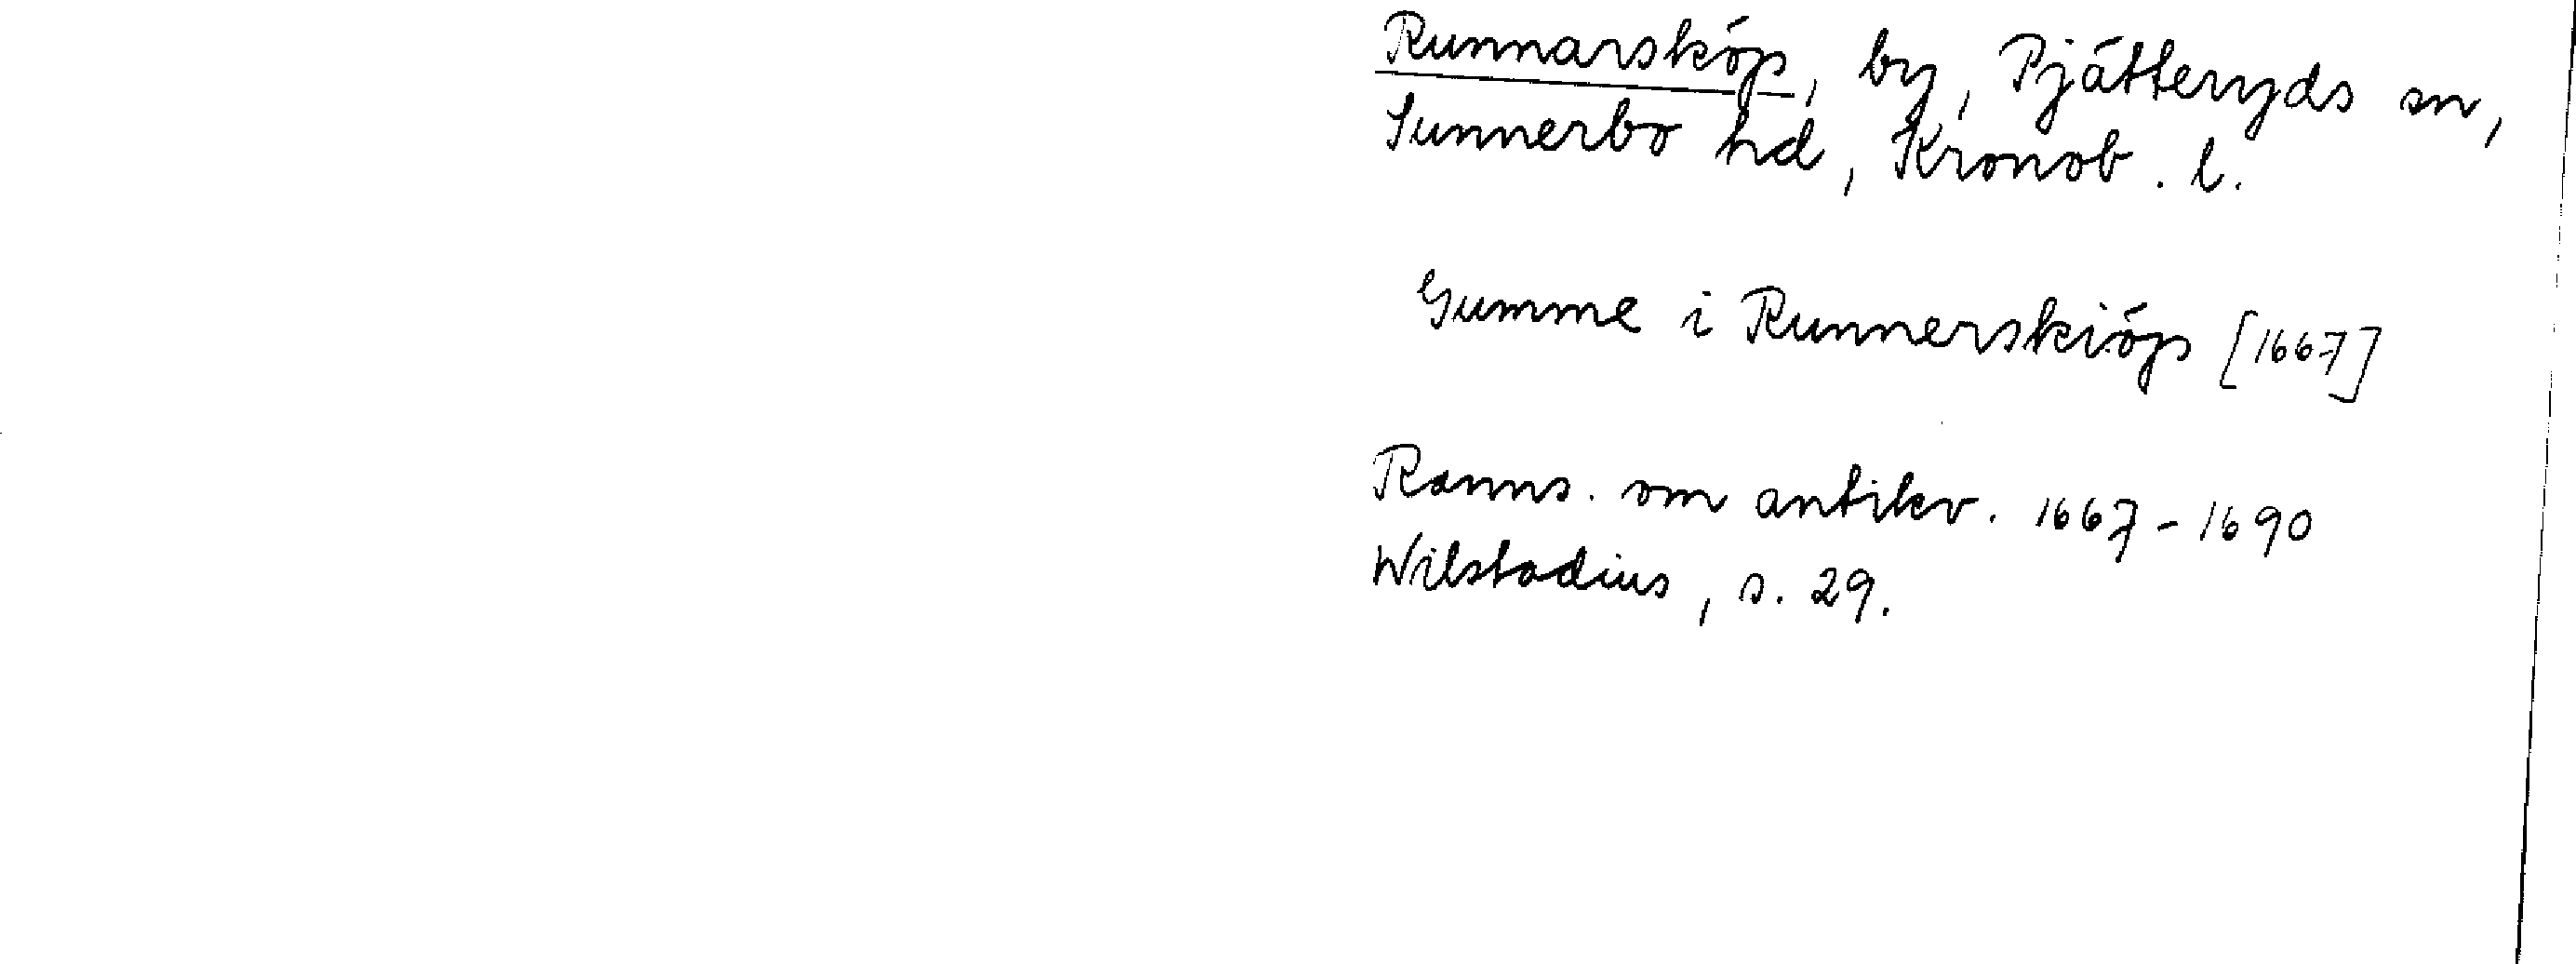 Runnarsköp, by, Pjätteryds sn,
Sunnerbo hd, Kronob. l.
Gumme i Runnerskiöp [1667]
Ranns. om antikv. 1667-1690
Wilstadius, s. 29.